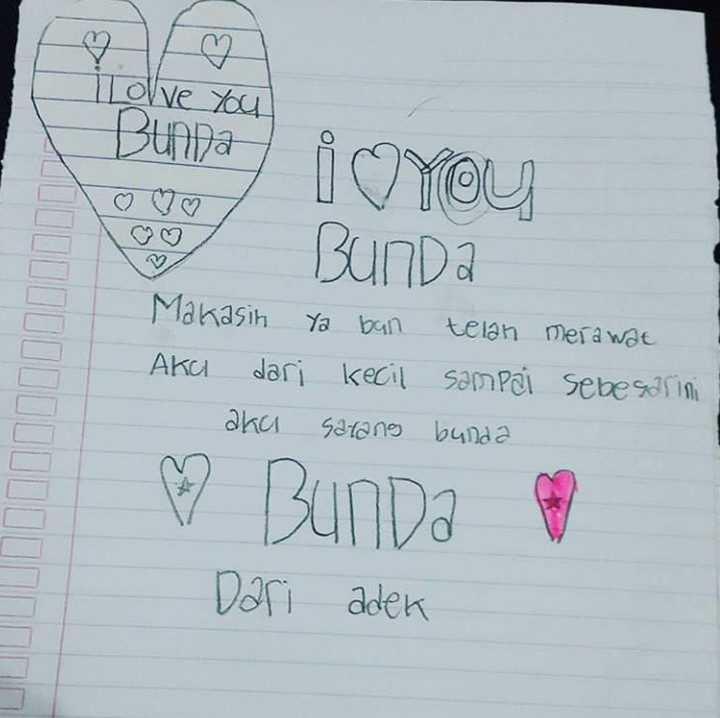 i LoVve You
Bunda
i ♡ You
Bunda
Makasih ya bun telah merawat
Aku dari kecil sampai sebesarini
aku sarang bunda
Bunda
Dari adek